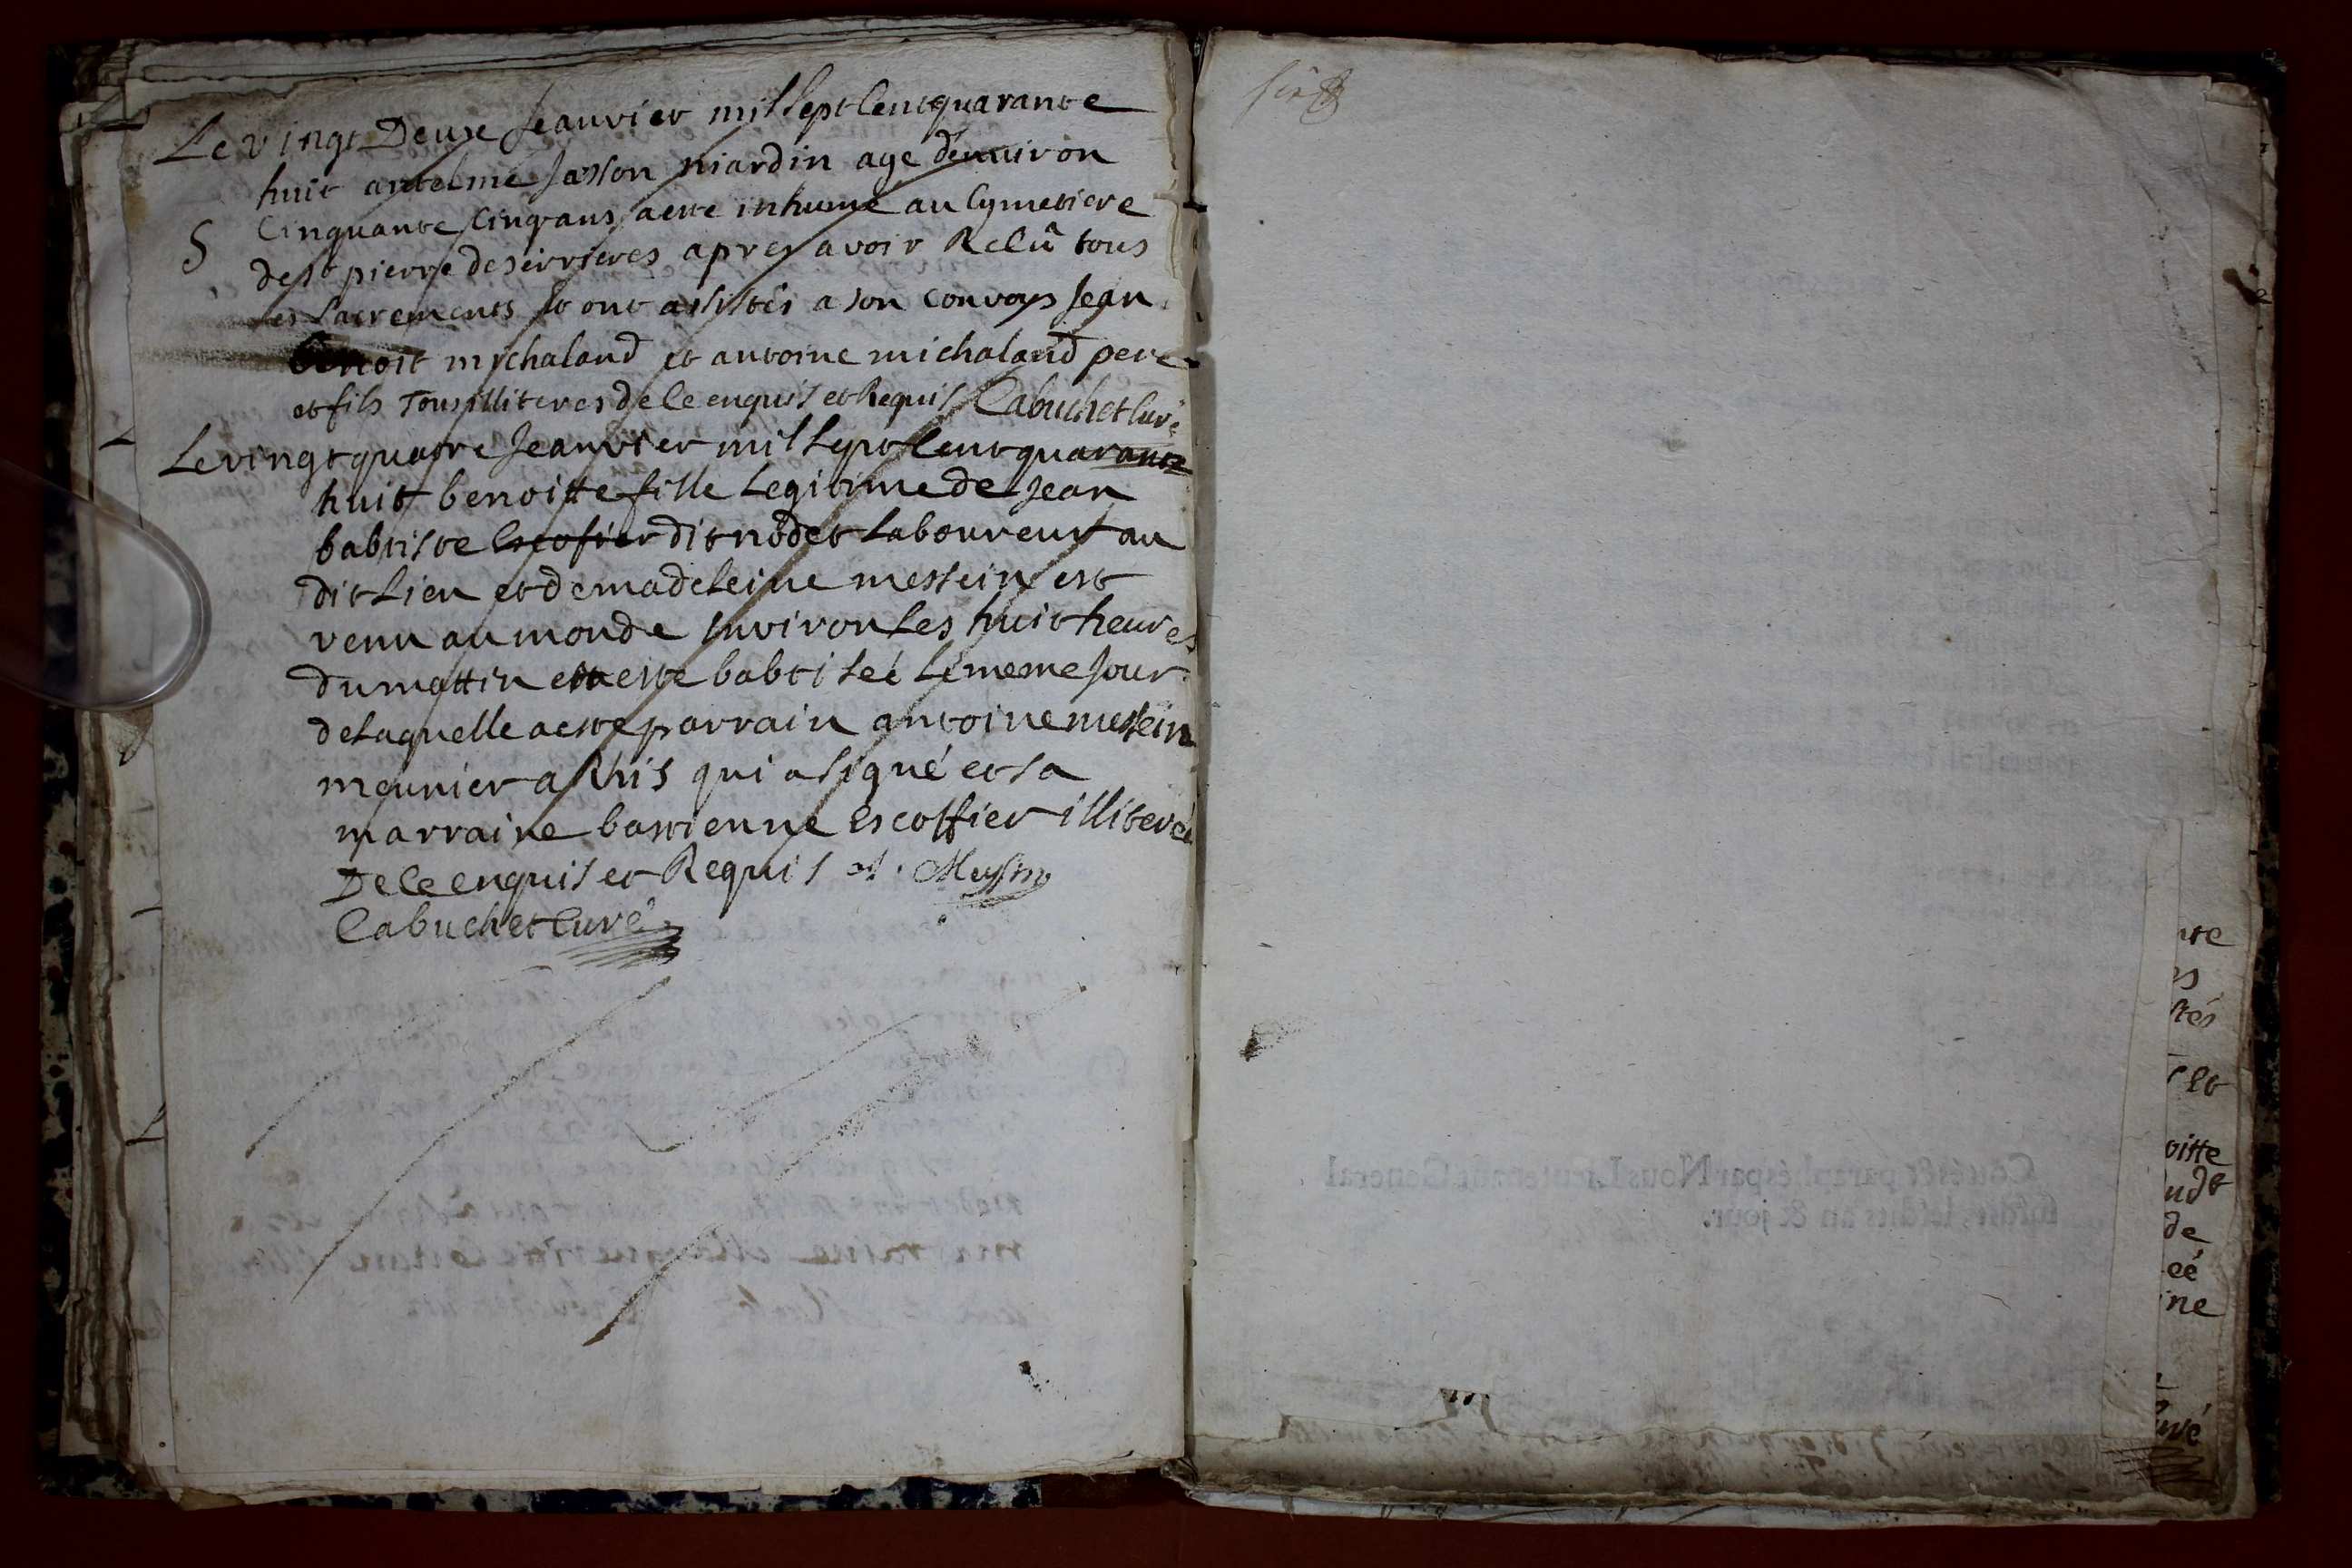 Le vingt Deuxe Jeanvier mil sept Cent quarante
huit antelme Jasson niardin age d'enuiron
S
Cinquante Cinq ans a este inhumé au Cymetiere
de st pierre desirrieres apres avoir Relû tous
les Sacrements et ont assistés a son Convoys Jean
benoit michaland et antoine michaland pere
et fils Tous illiteres de Ce enquis et Requis Cabuchet Curé
Le vingt quatre Jeanvier mil sept Cent quarante
huit benoitte fille Legitime de Jean
babtiste Escofier dit nodet Laboureur au
dit Lieu et de madeleine messein est
venu au monde Environ Les huit heures
du mattin et a este babtiseé Le meme Jour
de Laquelle a este parrain antoine messein
meunier a Rhis qui a signé et sa
marraine bastienne Escoffier illiteré
De Ce enquis et Requis A. Messin
Cabuchet Curé
Cottés & paraphés par Nous Lieutenant General
susdit, lesdits an & jour.
nte
es
stés
et
oitte
udt
de
eé
ne
Curé